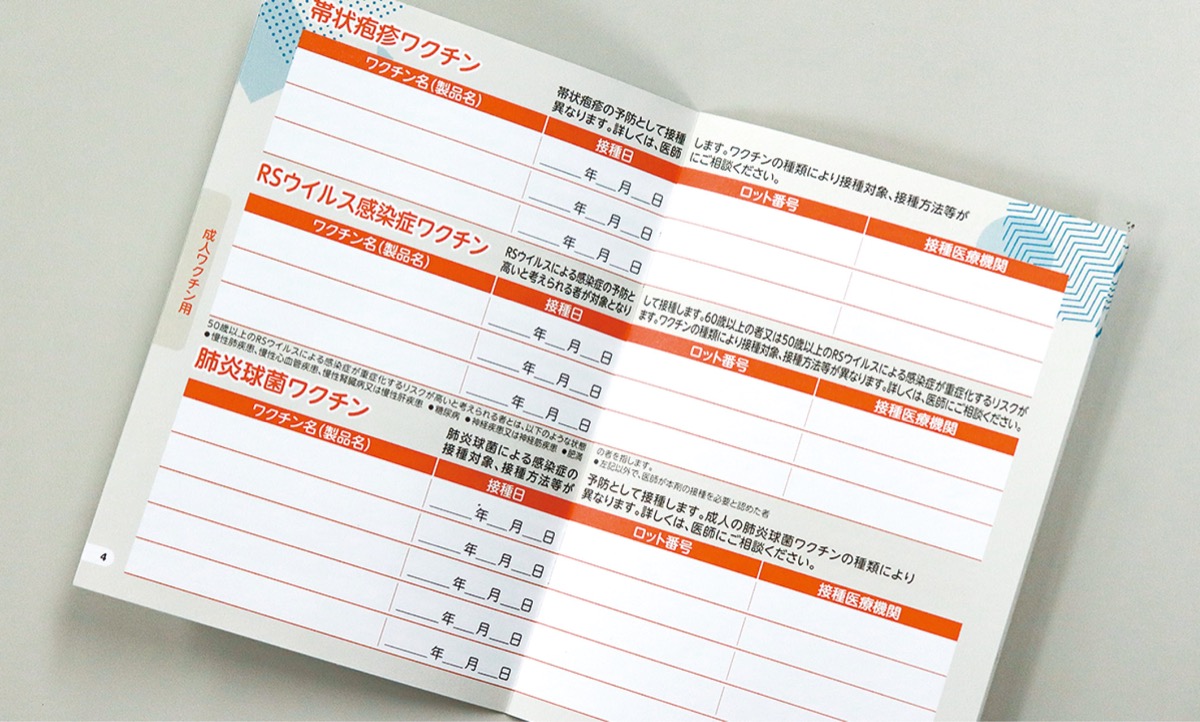 帯状疱疹ワクチン
帯状疱疹の予防として接種します。ワクチンの種類により接種対象、接種方法等が
異なります。詳しくは、医師にご相談ください。
ワクチン名(製品名) 接種日 ロット番号 接種医療機関
年 月 日
年 月 日
年 月 日
RSウイルス感染症ワクチン
RSウイルスによる感染症の予防として接種します。60歳以上の者又は50歳以上のRSウイルスによる感染症が重症化するリスクが
高いと考えられる者が対象となります。ワクチンの種類により接種対象、接種方法等が異なります。詳しくは、医師にご相談ください。
ワクチン名(製品名) 接種日 ロット番号 接種医療機関
年 月 日
年 月 日
年 月 日
50歳以上のRSウイルスによる感染症が重症化するリスクが高いと考えられる者とは、以下のような状態の者を指します。
●慢性肺疾患、慢性心血管疾患、慢性腎臓病又は慢性肝疾患 ●糖尿病 ●神経疾患又は神経筋疾患 ●肥満
●左記以外で、医師が本剤の接種を必要と認めた者
肺炎球菌ワクチン
肺炎球菌による感染症の予防として接種します。成人の肺炎球菌ワクチンの種類により
接種対象、接種方法等が異なります。詳しくは、医師にご相談ください。
ワクチン名(製品名) 接種日 ロット番号 接種医療機関
年 月 日
年 月 日
年 月 日
年 月 日
年 月 日
成人ワクチン用
4